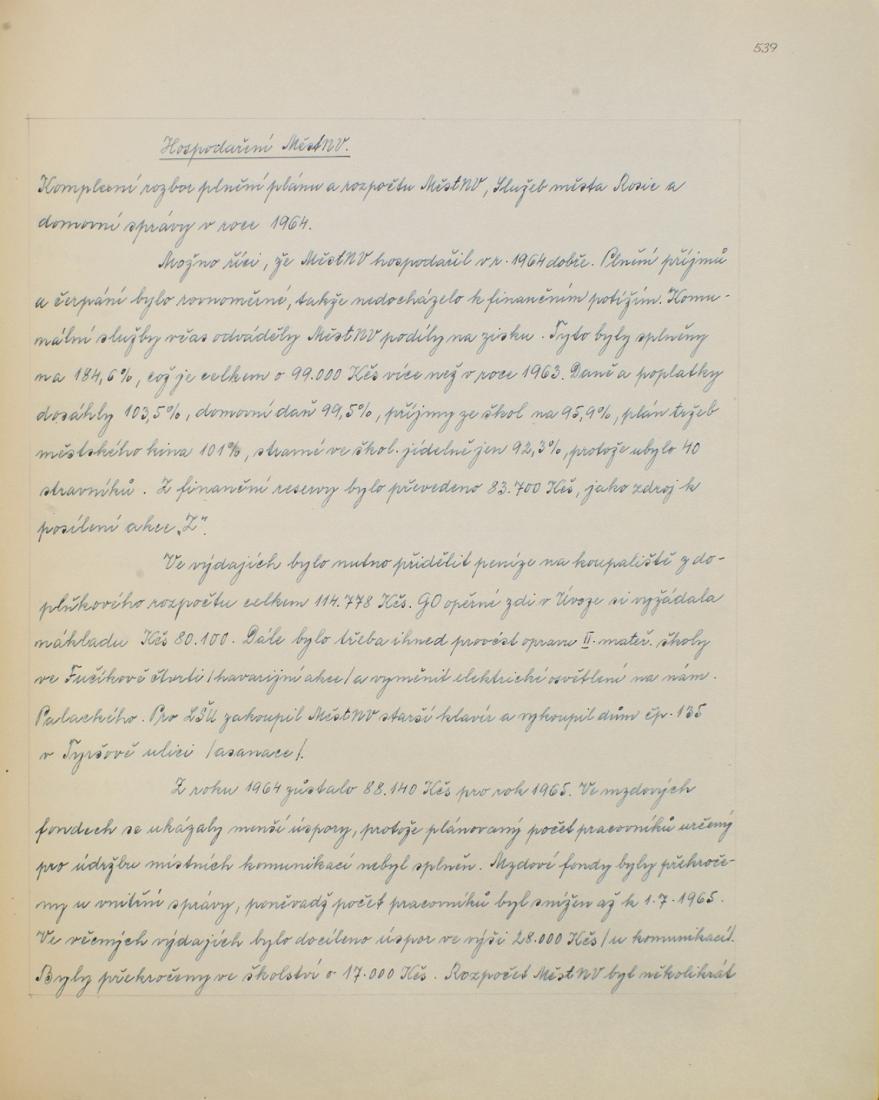 539
Hospodaření MěstNV.
Komplexní rozbor plnění plánu a rozpočtu MěstNV, Služeb města Rosic a
domovní správy v roce 1964.
Možno říci, že MěstNV hospodařil v r. 1964 dobře. Plnění příjmů
a čerpání bylo rovnoměrné, takže nedocházelo k finančním potížím. Komu-
nální služby včas odváděly MěstNV podíly na zisku. Tyto byly splněny
na 184,6%, což je celkem o 99.000 Kčs více než v roce 1963. Daně a poplatky
dosáhly 103,5%, domovní daň 99,5%, příjmy ze škol na 95,9%, plán tržeb
městského kina 101%, stravné ve škol. jídelně jen 92,3%, protože ubylo 40
stravníků. Z finanční reservy bylo převedeno 83.700 Kčs, jako zdroj k
posílení akce „Z".
Ve výdajích bylo nutno přidělit peníze na koupaliště z do-
plňkového rozpočtu celkem 114.778 Kčs. GO opěrné zdi v Úvoze si vyžádala
nákladu Kčs 80.100. Dále bylo třeba ihned provést opravu II. mateř. školy
ve Fučíkově čtvrti /havarijní akce/ a vyměnit elektrické osvětlení na nám.
Palackého. Pro LŠU zakoupil MěstNV starší klavír a vykoupil dům čp. 135
v Tyršově ulici /asanace/.
Z roku 1964 zůstalo 88.140 Kčs pro rok 1965. Ve mzdových
fondech se ukázaly menší úspory, protože plánovaný počet pracovníků určený
pro údržbu místních komunikací nebyl splněn. Mzdové fondy byly překroče-
ny u vnitřní správy, poněvadž počet pracovníků byl snížen až k 1.7.1965.
Ve věcných výdajích bylo docíleno úspor ve výši 28.000 Kčs /u komunikací/.
Byly překročeny ve školství o 17.000 Kčs. Rozpočet MěstNV byl několikrát